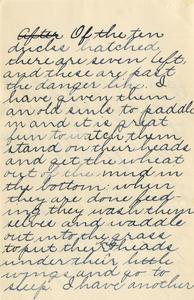 After Of the ten
ducks hatched,
there are seven left,
and these are past
the danger line. I
have given them
an old sink to paddle
in and it is great
fun to watch them
stand on their heads
and get the wheat
out of the mud in
the bottom: when
they are done feed-
ing they wash them
selves and waddle
out into the grass
to put their heads
under their little
wings and go to
sleep. I have another